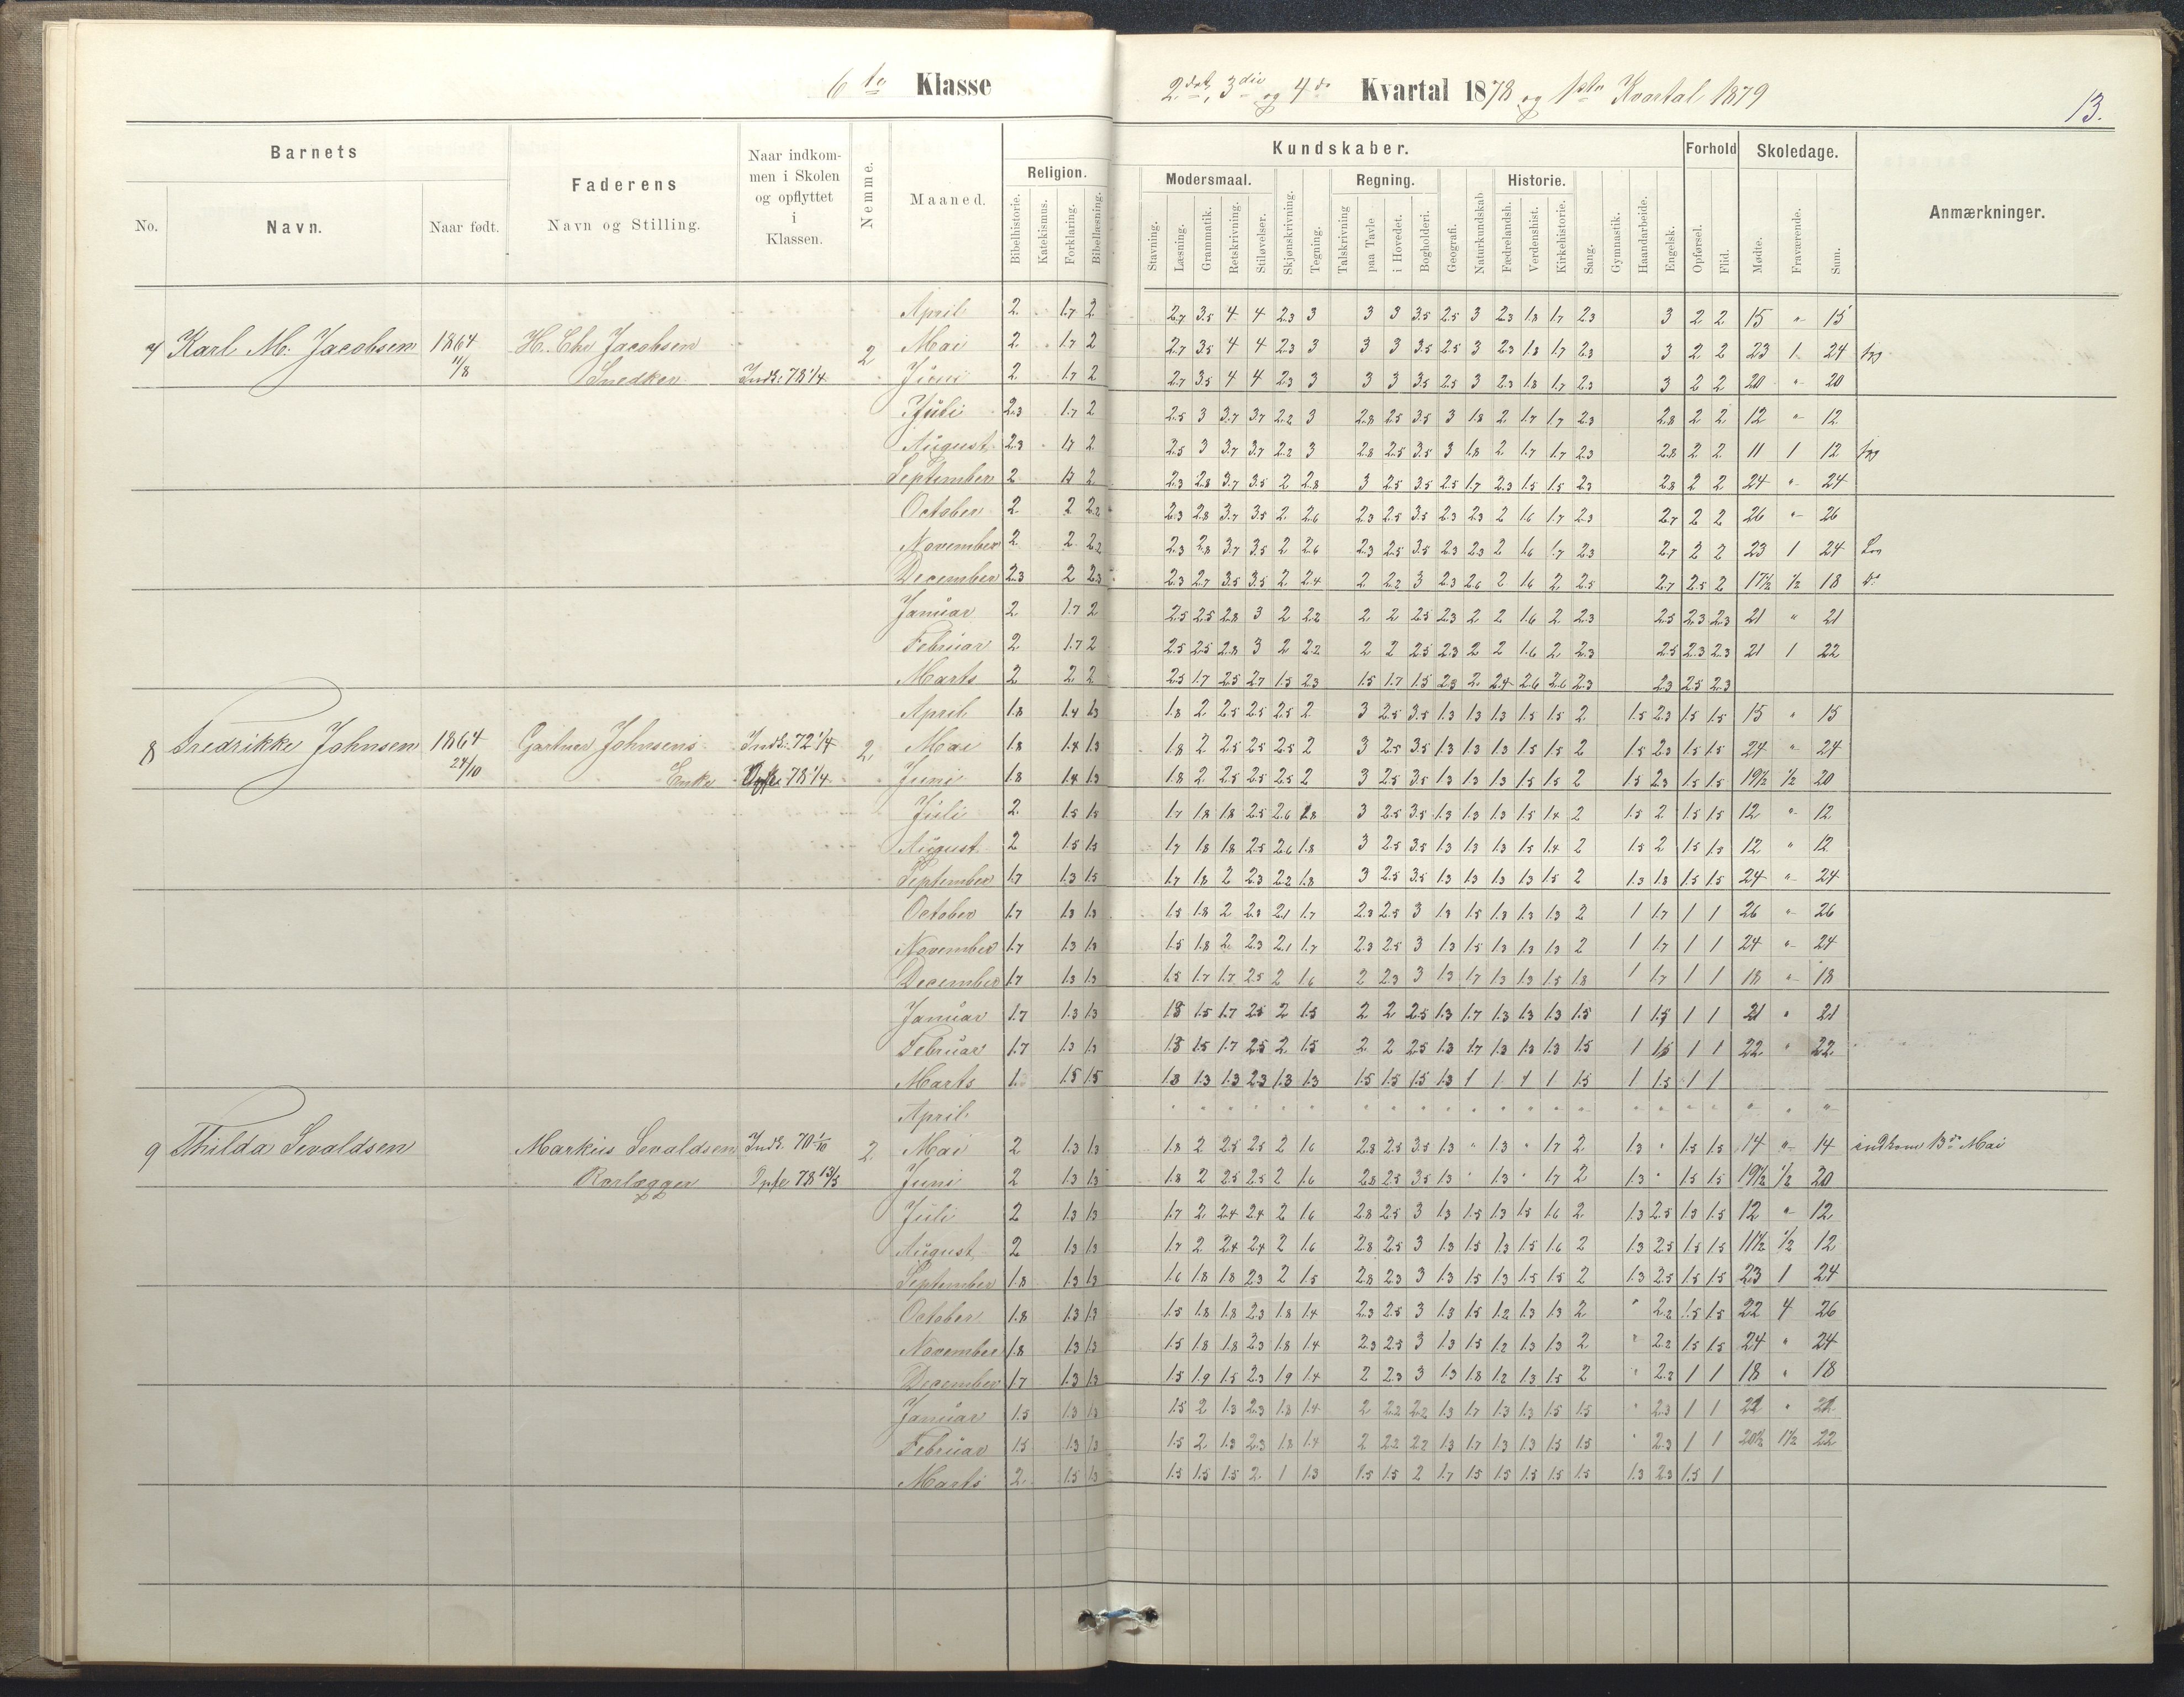 6te Klasse
2det, 3die og 4de Kvartal 1878 og 1ste Kvartal 1879
13.
Barnets
Faderens
Naar indkommen i Skolen og opflyttet i Klassen.
Nemme.
Maaned.
Religion.
Kundskaber.
Forhold
Skoledage.
Anmærkninger.
No.
Navn.
Naar født.
Navn og Stilling.
Bibelhistorie.
Katekismus.
Forklaring.
Bibellæsning.
Modersmaal.
Regning.
Historie.
Stavning.
Læsning.
Grammatik.
Retskrivning.
Stiløvelser.
Skjønskrivning.
Tegning.
Talskrivning
paa Tavle
i Hovedet.
Bogholderi.
Geografi.
Naturkundskab
Fædrelandsh.
Verdenshist.
Kirkehistorie.
Sang.
Gymnastik.
Haandarbeide.
Engelsk.
Opførsel.
Flid.
Mødte.
Fraværende.
Sum.
April 2 1.7 2 2.7 3.5 4 4 2.3 3 3 3 3.5 2.5 3 2.3 1.8 1.7 2.3 3 2 2 15 " 15
7 Karl M. Jacobsen 1864 11/8 H. Chr Jacobsen 2 Mai 2 1.7 2 2.7 3.5 4 4 2.3 3 3 3 3.5 2.5 3 2.3 1.8 1.7 2.3 3 2 2 23 1 24
Snedker Indk: 78 1/4 Juni 2 1.7 2 2.7 3.5 4 4 2.3 3 3 3 3.5 2.5 3 2.3 1.8 1.7 2.3 3 2 2 20 " 20
Juli 2.3 1.7 2 2.5 3 3.7 3.7 2.2 3 2.8 2.5 3.5 3 1.8 2 1.7 1.7 2.3 2.8 2 2 12 " 12
August 2.3 1.7 2 2.5 3 3.7 3.7 2.2 3 2.8 2.5 3.5 3 1.8 2 1.7 1.7 2.3 2.8 2 2 11 1 12
September 2 1.7 2 2.3 2.8 3.7 3.5 2 2.8 3 2.5 3.5 2.5 1.7 2.3 1.5 1.5 2.3 2.8 2 2 24 " 24
October 2 2 2.2 2.3 2.8 3.7 3.5 2 2.6 2.3 2.5 3.5 2.3 2.3 2 1.6 1.7 2.3 2.7 2 2 26 " 26
November 2 2 2.2 2.3 2.8 3.7 3.5 2 2.6 2.3 2.5 3.5 2.3 2.3 2 1.6 1.7 2.3 2.7 2 2 23 1 24
December 2.3 2 2.3 2.3 2.7 3.5 3.5 2 2.4 2 2.2 3 2.3 2.6 2 1.6 2 2.5 2.7 2.5 2 17½ ½ 18
Januar 2 1.7 2 2.5 2.5 2.8 3 2 2.2 2 2 2.5 2.3 2 2 1.6 2 2.3 2.5 2.3 2.3 21 " 21
Februar 2 1.7 2 2.5 2.5 2.8 3 2 2.2 2 2 2.5 2.3 2 2 1.6 2 2.3 2.5 2.3 2.3 21 1 22
Marts 2 2 2 2.5 1.7 2.5 2.7 1.5 2.3 1.5 1.7 1.5 2.3 2 2.4 2.6 2.6 2.3 2.3 2.5 2.3
April 1.8 1.4 1.3 1.8 2 2.5 2.5 2.5 2 3 2.5 3.5 1.3 1.3 1.3 1.5 1.5 2 1.5 2.3 1.5 1.5 15 " 15
8 Fredrikke Johnsen 1864 24/10 Gartner Johnsens Indk: 72 1/4 2 Mai 1.8 1.4 1.3 1.8 2 2.5 2.5 2.5 2 3 2.5 3.5 1.3 1.3 1.3 1.5 1.5 2 1.5 2.3 1.5 1.5 24 " 24
Enke Opfl. 78 1/4 Juni 1.8 1.4 1.3 1.8 2 2.5 2.5 2.5 2 3 2.5 3.5 1.3 1.3 1.3 1.5 1.5 2 1.5 2.3 1.5 1.5 19½ ½ 20
Juli 2 1.5 1.5 1.7 1.8 1.8 2.5 2.6 1.8 3 2.5 3.5 1.3 1.3 1.3 1.5 1.4 2 1.5 2 1.5 1.5 12 " 12
August 2 1.5 1.5 1.7 1.8 1.8 2.5 2.6 1.8 3 2.5 3.5 1.3 1.3 1.3 1.5 1.4 2 1.5 2 1.5 1.5 12 " 12
September 1.7 1.3 1.5 1.7 1.8 2 2.3 2.2 1.8 3 2.5 3.5 1.3 1.3 1.3 1.3 1.5 2 1.3 1.8 1.5 1.5 24 " 24
October 1.7 1.3 1.3 1.5 1.8 2 2.3 2.1 1.7 2.3 2.5 3 1.3 1.5 1.3 1.3 1.3 2 1 1.7 1 1 26 " 26
November 1.7 1.3 1.3 1.5 1.8 2 2.3 2.1 1.7 2.3 2.5 3 1.3 1.5 1.3 1.3 1.3 2 1 1.7 1 1 24 " 24
December 1.7 1.3 1.3 1.5 1.7 1.7 2.5 2 1.6 2 2.3 3 1.3 1.7 1.3 1.3 1.5 1.8 1 1.7 1 1 18 " 18
Januar 1.7 1.3 1.3 1.8 1.5 1.7 2.5 2 1.5 2 2 2.5 1.3 1.7 1.3 1.3 1.3 1.5 1 1.5 1 1 21 " 21
Februar 1.7 1.3 1.3 1.8 1.5 1.7 2.5 2 1.5 2 2 2.5 1.3 1.7 1.3 1.3 1.3 1.5 1 1.5 1 1 22 " 22
Marts 1.5 1.5 1.3 1.3 1.3 2.3 1.3 1.3 1.5 1.5 1.5 1.3 1 1 1 1 1.5 1 1.5 1 1
April " " " " " " " " " " " " " " " " " " " " " "
9 Thilda Sevaldsen Markus Sevaldsen Indk. 70 1/10 2 Mai 2 1.3 1.3 1.8 2 2.5 2.5 2 1.6 2.8 2.5 3.5 1.3 " 1.3 " 1.7 2 1.3 " 1.5 1.5 14 " 14 indkom 13de Mai
Rørlægger Opfl 78 13/5 Juni 2 1.3 1.3 1.8 2 2.5 2.5 2 1.6 2.8 2.5 3.5 1.3 " 1.3 " 1.7 2 1.3 " 1.5 1.5 19½ ½ 20
Juli 2 1.3 1.3 1.7 2 2.4 2.4 2 1.6 2.8 2.5 3 1.3 1.5 1.3 1.5 1.6 2 1.3 2.5 1.5 1.5 12 " 12
August 2 1.3 1.3 1.7 2 2.4 2.4 2 1.6 2.8 2.5 3 1.3 1.5 1.3 1.5 1.6 2 1.3 2.5 1.5 1.5 11½ ½ 12
September 1.8 1.3 1.3 1.6 1.8 1.8 2.3 2 1.5 2.8 2.3 3 1.3 1.5 1.3 1.5 1.5 2 1.3 2.5 1.5 1.5 23 1 24
October 1.8 1.3 1.3 1.5 1.8 1.8 2.3 1.8 1.4 2.3 2.5 3 1.3 1.5 1.2 1.3 1.3 2 " 2.2 1.5 1.5 22 4 26
November 1.8 1.3 1.3 1.5 1.8 1.8 2.3 1.8 1.4 2.3 2.5 3 1.3 1.5 1.2 1.3 1.3 2 " 2.2 1.5 1.5 24 " 24
December 1.7 1.3 1.3 1.5 1.9 1.5 2.3 1.9 1.4 2 2.3 3 1.3 1.8 1.2 1.3 1.5 2 " 2.2 1 1 18 " 18
Januar 1.5 1.3 1.3 1.5 2 1.3 2.3 1.8 1.4 2 2.2 2.2 1.3 1.7 1.3 1.3 1.5 1.5 " 2.3 1 1 "
Februar 1.5 1.3 1.3 1.5 2 1.3 2.3 1.8 1.4 2 2.2 2.2 1.3 1.7 1.3 1.3 1.5 1.5 " 2.3 1 1 20½ 1½ 22
Marts 2 1.5 1.3 1.5 1.5 1.5 2 1 1.3 1.5 1.5 2 1.7 1.5 1.5 1.5 1.5 1.5 1.3 2.3 1.5 1